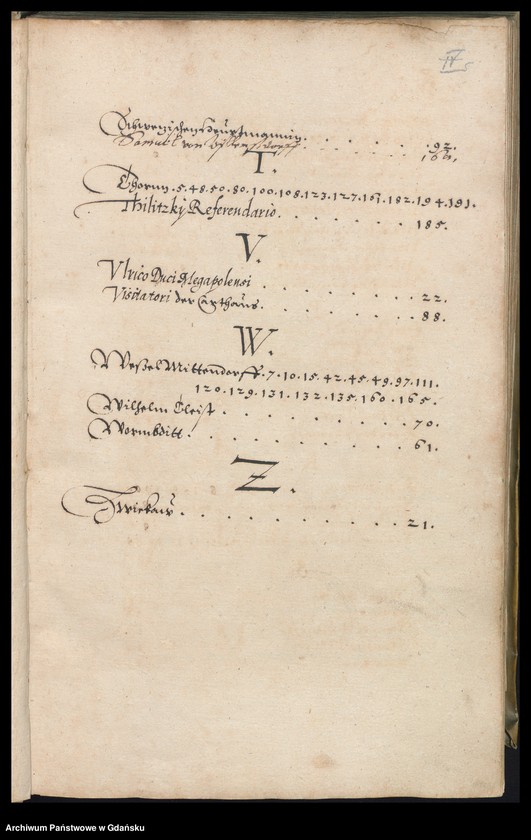 IV
Schwenischen Hauptmannin. . . . . 92.
Samuel von . . . . . 161.
T.
Thorun .5.48.50.80.100.108.123.127.151.182.194.191.
Thilitzkÿ Referendario. . . . . . . . 185.
V.
Vlrico Duci Megapolensi . . . . . . . 22.
Visitatori der Carthaus. . . . . . . . 88.
W.
Weßel Mittendorff .7.10.15.42.45.49.97.111.
120.129.131.132.135.160.165.
Wilhelm Cleist . . . . . . . 70.
Wormbditt. . . . . . . . . 61.
Z.
Zwickaw. . . . . . . . . . 21.
Archiwum Państwowe w Gdańsku